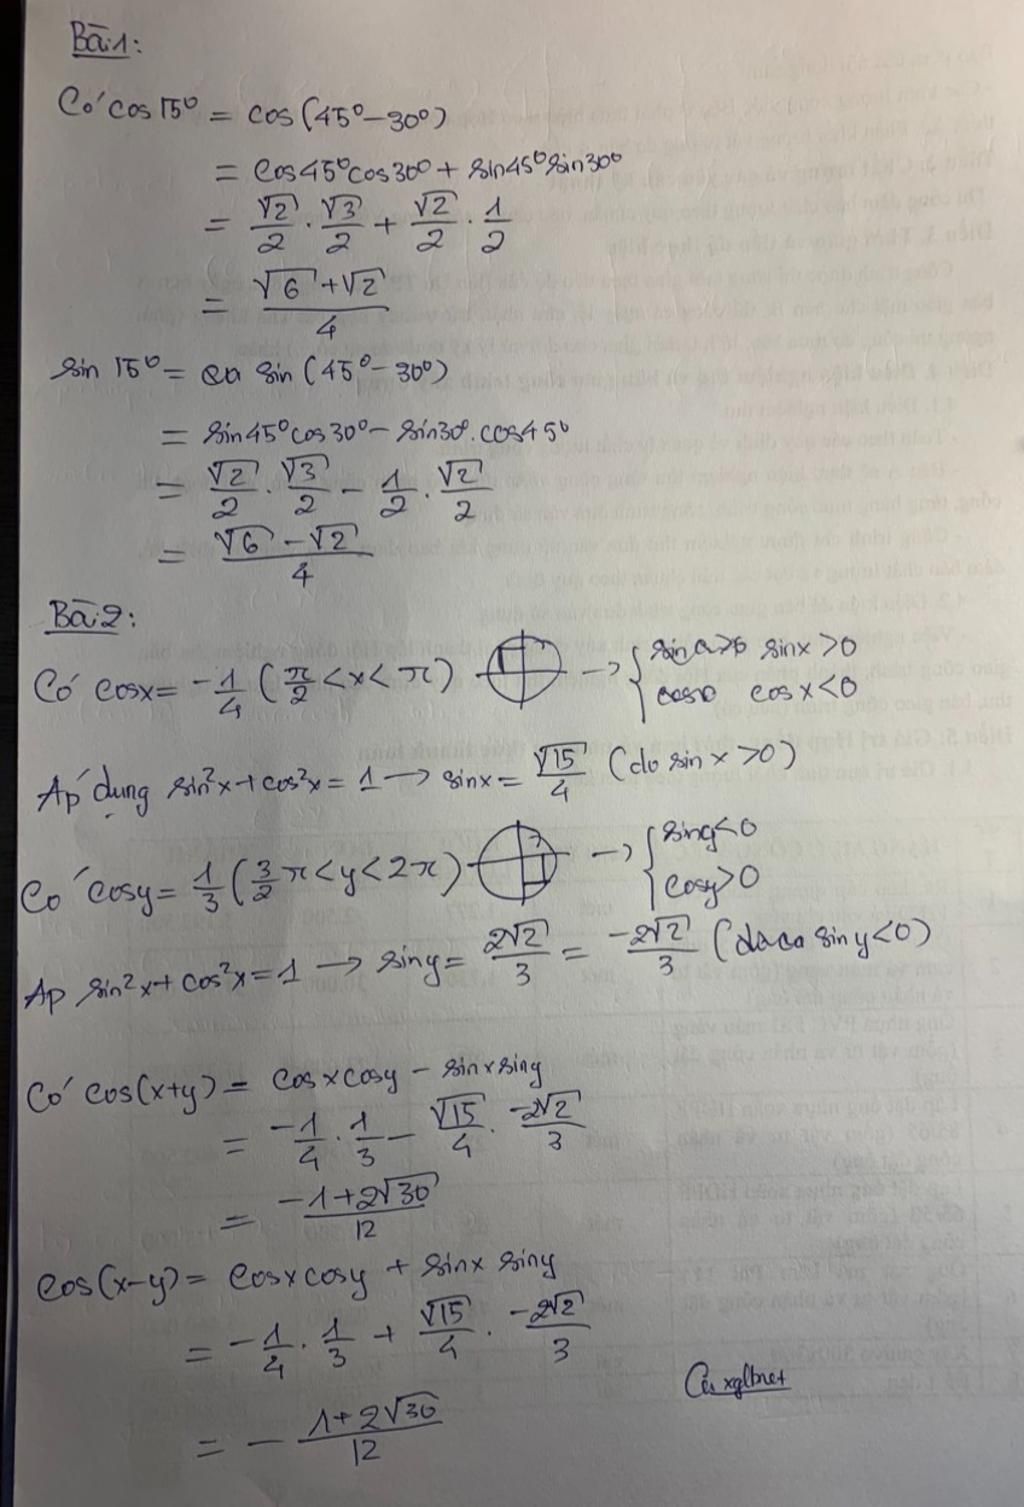 Bài 1:
Có cos 15° = cos(45° - 30°)
= cos45°cos30° + sin45°sin30°
= √2/2 . √3/2 + √2/2 . 1/2
= (√6 + √2)/4
sin 15° = sin (45° - 30°)
= sin45°cos30° - sin30°.cos45°
= √2/2 . √3/2 - 1/2 . √2/2
= (√6 - √2)/4
Bài 2:
Có cosx = -1/4 (π/2 < x < π) → { sinx > 0
cosx < 0
Áp dụng sin²x + cos²x = 1 → sinx = √15/4 (do sinx > 0)
Có cosy = 1/3 (3/2 π < y < 2π) → { siny < 0
cosy > 0
Áp sin²x + cos²x = 1 → siny = 2√2/3 = -2√2/3 (do siny < 0)
Có cos(x+y) = cosxcosy - sinxsiny
= -1/4 . 1/3 - √15/4 . -2√2/3
= (-1 + 2√30)/12
cos(x-y) = cosxcosy + sinx siny
= -1/4 . 1/3 + √15/4 . -2√2/3
= - (1 + 2√30)/12